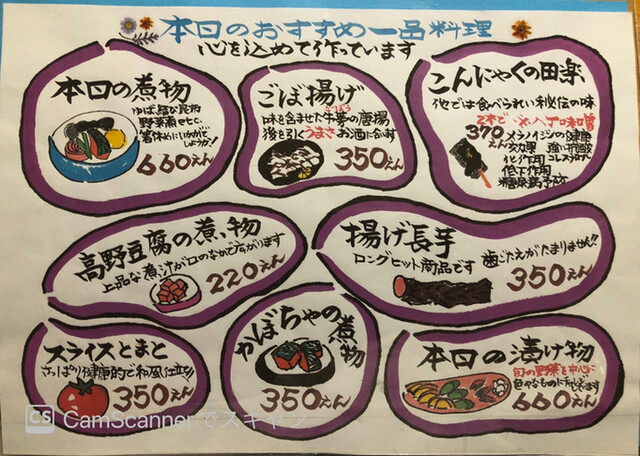 本日のおすすめ一品料理
心を込めて作っています
本日の煮物
ゆば、結び昆布
野菜煮etc.
箸休めにいかがでしょうか!
660えん
ごぼ揚げ
ごぼう
味を含ませた牛蒡の唐揚
後を引くうまさお酒に合います
350えん
こんにゃくの田楽
他では食べられない秘伝の味
2本で
370えん
八丁味噌
メラノイジンの健康
効果
強い抗酸
化作用 コレステロール
低下作用
糖尿病予防
高野豆腐の煮物
上品な煮汁が口のなかで広がります
220えん
揚げ長芋
ロングヒット商品です
歯ごたえがたまりません!!
350えん
スライスとまと
さっぱり健康的で和風仕立
350えん
かぼちゃの煮物
350えん
本日の漬け物
旬の野菜を中心に
660えん
CS CamScannerでスキャン